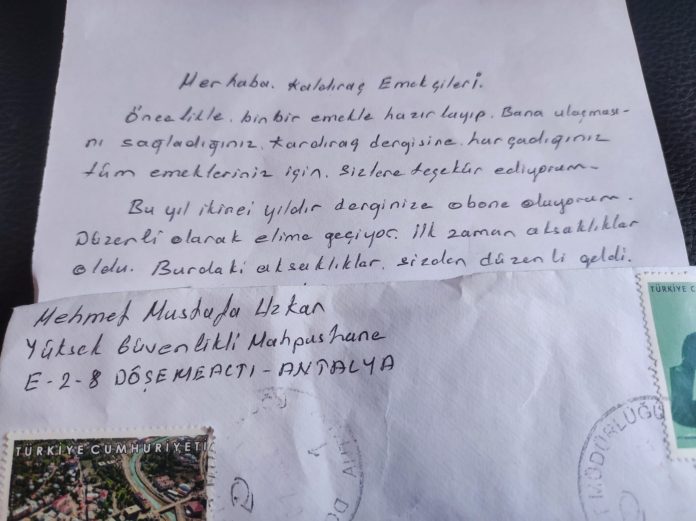 Merhaba. Kaldıraç Emekçileri.
Öncelikle. bin bir emekle hazırlayıp. Bana ulaşması-
nı sağladığınız. Kardıraç dergisine. harçadığınız
tüm emekleriniz için. sizlere teşekür ediyorum.
Bu yıl ikinci yıldır derginize abone oluyorum.
Düzenli olarak elime geçiyor. ilk zaman aksaklıklar
oldu. Burdaki aksaklıklar. sizden düzenli geldi.
Mehmet Mustafa Uzkan
Yüksek Güvenlikli Mahpushane
E-2-8 DÖŞEMEALTI-ANTALYA
TÜRKİYE CUMHURİYETİ
TÜRKİYE C
MÜDÜRLÜĞÜ